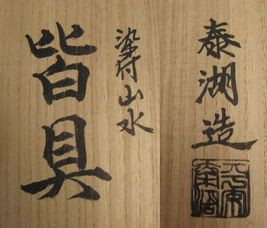 泰湖造
染付山水
皆具